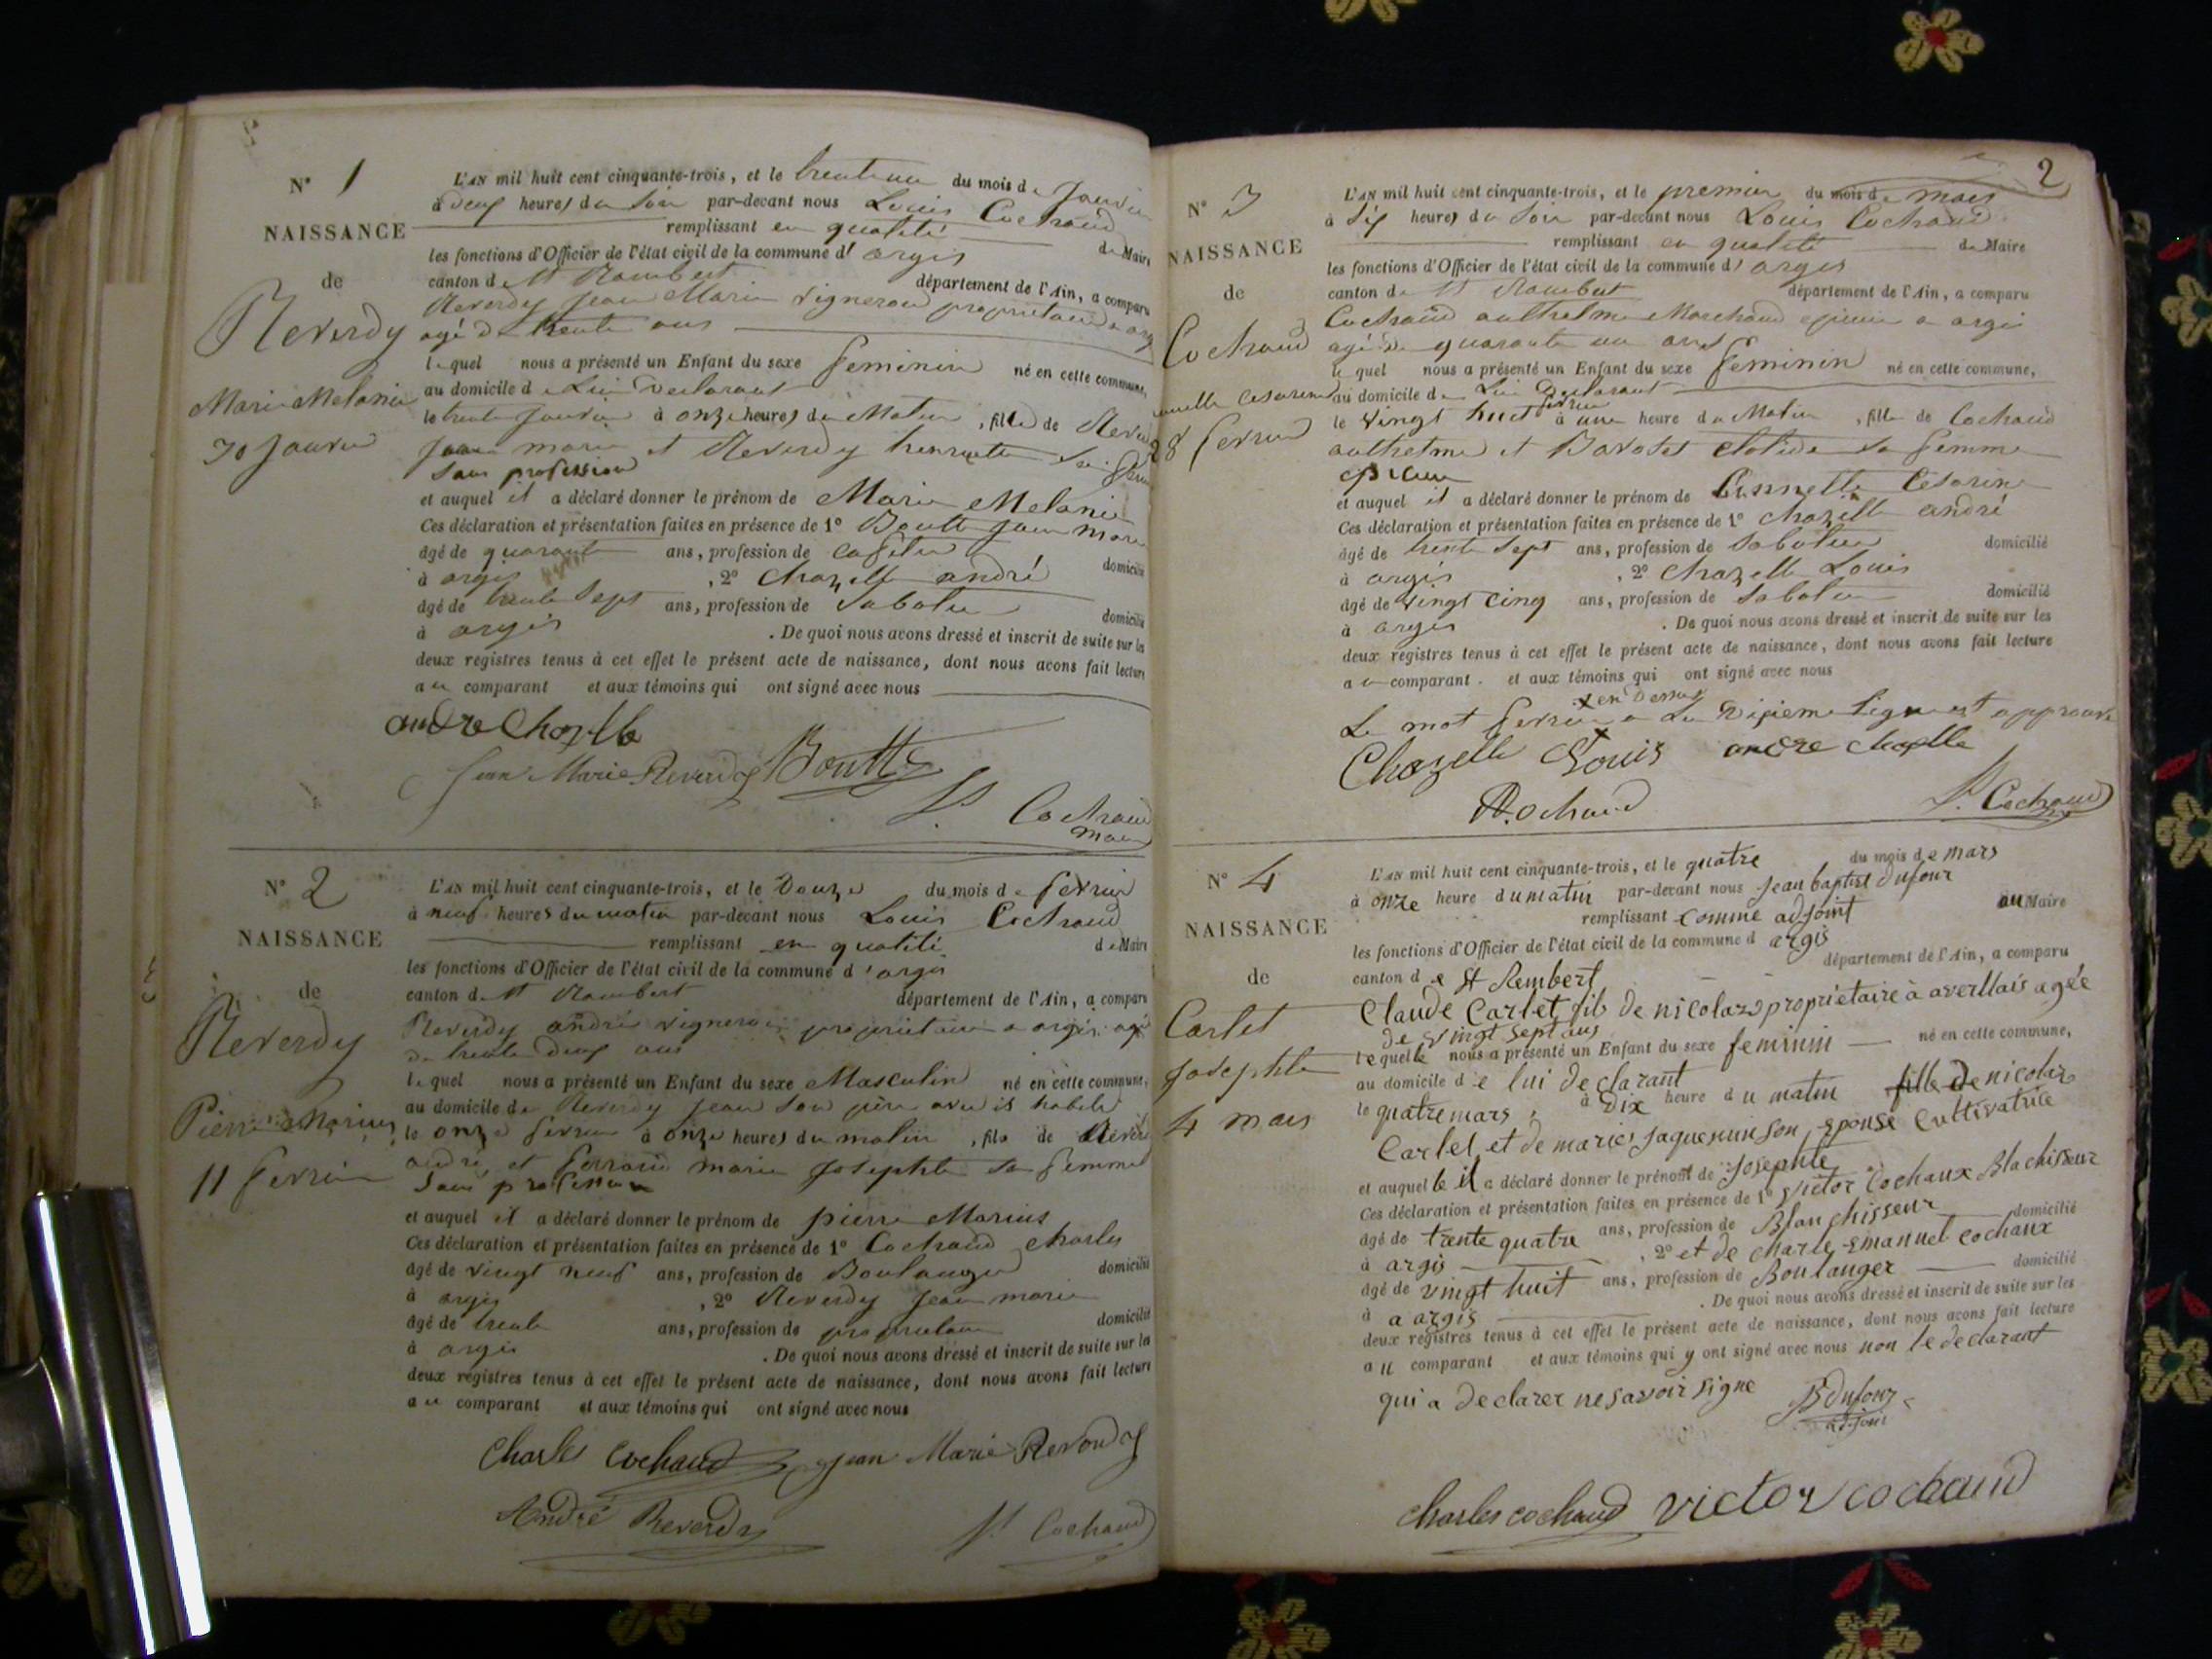 N° 1
NAISSANCE
de
Reverdy
Marie Melanie
30 Janvier
L'AN mil huit cent cinquante-trois, et le trente un du mois de Janvier
à deux heures du Soir par-devant nous Louis Cochaud
remplissant en qualité de Maire
les fonctions d'Officier de l'état civil de la commune d' argis
canton de St Rambert département de l'Ain, a comparu
Reverdy Jean Marie vigneron propriétaire a argis
agé de trente ans
lequel nous a présenté un Enfant du sexe feminin né en cette commune,
au domicile de Lui Declarant
le trente Janvier à onze heures du Matin, fille de Reverdy
Jean marie et Reverdy henriette sa femme
Sans profession
et auquel il a déclaré donner le prénom de Marie Melanie
Ces déclaration et présentation faites en présence de 1° Boutte Jean Marie
âgé de quarante ans, profession de domicilié
à argis, 2° Chazelle andré
âgé de trente Sept ans, profession de Sabotier domicilié
à argis. De quoi nous avons dressé et inscrit de suite sur les
deux registres tenus à cet effet le présent acte de naissance, dont nous avons fait lecture
au comparant et aux témoins qui ont signé avec nous
andre Chazelle
Jean Marie Reverdy Boutte
Ls Cochaud
maire
N° 2
NAISSANCE
de
Reverdy
Pierre Marius
11 fevrier
L'AN mil huit cent cinquante-trois, et le Douze du mois de fevrier
à neuf heures du matin par-devant nous Louis Cochaud
remplissant en qualité de Maire
les fonctions d'Officier de l'état civil de la commune d'argis
canton de St Rambert département de l'Ain, a comparu
Reverdy andré vigneron propriétaire a argis agé
de trente deux ans
lequel nous a présenté un Enfant du sexe Masculin né en cette commune,
au domicile de Reverdy Jean Son père avec il habite
le onze fevrier à onze heures du matin, fils de Reverdy
andré et marie Josephte sa femme
Sans profession
et auquel il a déclaré donner le prénom de pierre Marius
Ces déclaration et présentation faites en présence de 1° Cochaud Charles
âgé de vingt neuf ans, profession de Boulanger domicilié
à argis, 2° Reverdy Jean marie
âgé de trente ans, profession de propriétaire domicilié
à argis. De quoi nous avons dressé et inscrit de suite sur les
deux registres tenus à cet effet le présent acte de naissance, dont nous avons fait lecture
au comparant et aux témoins qui ont signé avec nous
Charles Cochaud Jean Marie Reverdy
André Reverdy Ls Cochaud
2
N° 3
NAISSANCE
de
Cochaud
Cesarine
28 fevrier
L'AN mil huit cent cinquante-trois, et le premier du mois de mars
à Six heures du Soir par-devant nous Louis Cochaud
remplissant en qualité de Maire
les fonctions d'Officier de l'état civil de la commune d' argis
canton de St Rambert département de l'Ain, a comparu
Cochaud anthelme Marchand epicier a argis
agé de quarante un ans
lequel nous a présenté un Enfant du sexe feminin né en cette commune,
au domicile de Lui Declarant
fevrier
le vingt huit à une heure du Matin, fille de Cochaud
anthelme et Clotide sa femme
epiciere
et auquel il a déclaré donner le prénom de Cesarine
Ces déclaration et présentation faites en présence de 1° Chazelle andré
âgé de trente Sept ans, profession de Sabotier domicilié
à argis, 2° Chazelle Louis
âgé de vingt cinq ans, profession de Sabotier domicilié
à argis. De quoi nous avons dressé et inscrit de suite sur les
deux registres tenus à cet effet le présent acte de naissance, dont nous avons fait lecture
au comparant. et aux témoins qui ont signé avec nous
en Dessus
Le mot fevrier a La Dixieme ligne est approuvé
Chazelle Louis andre chazelle
A. Cochaud Ls Cochaud
N° 4
NAISSANCE
de
Carlet
Josephte
4 mars
L'AN mil huit cent cinquante-trois, et le quatre du mois de mars
à onze heure du matin par-devant nous Jean baptist dufour
remplissant comme adjoint au Maire
les fonctions d'Officier de l'état civil de la commune d argis
canton de St Rembert département de l'Ain, a comparu
Claude Carlet fils de nicolas propriétaire à averllais agée
de vingt sept ans
lequelle nous a présenté un Enfant du sexe feminin né en cette commune,
au domicile de lui declarant
le quatre mars, à dix heure du matin fille de nicolas
Carlet et de marie Jaquemin son epouse Cultivatrice
et auquel le il a déclaré donner le prénom de Josephte
Ces déclaration et présentation faites en présence de 1° victor Cochaux Blachisseur
âgé de trente quatre ans, profession de Blanchisseur domicilié
à argis, 2° et de charle emanuel cochaux
âgé de vingt huit ans, profession de Boulanger domicilié
à a argis. De quoi nous avons dressé et inscrit de suite sur les
deux registres tenus à cet effet le présent acte de naissance, dont nous avons fait lecture
au comparant et aux témoins qui y ont signé avec nous non le declarant
qui a declarer ne savoir signe JB dufour
adjoint
charles cochaud victor cochaud